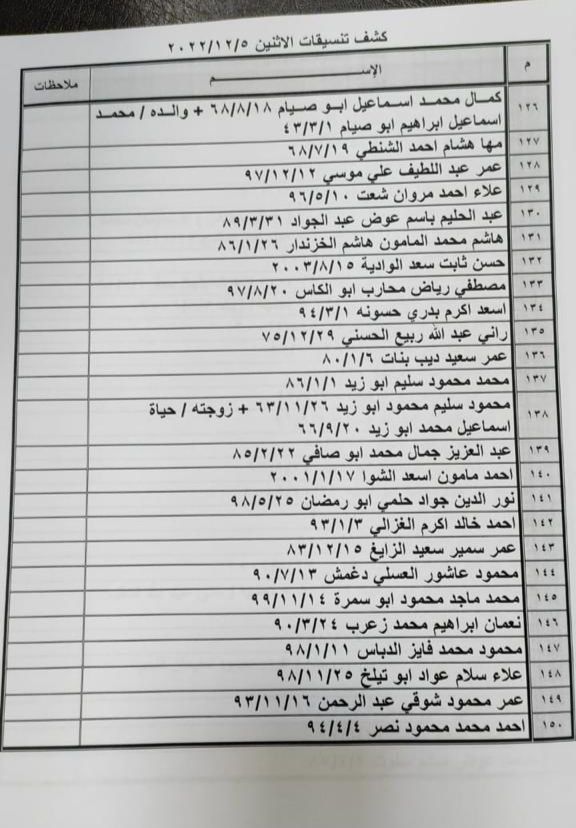 كشف تنسيقات الاثنين ٢٠٢٢/١٢/٥
م الإســــــــم ملاحظات
١٢٦ كمال محمد اسماعيل ابو صيام ٦٨/٨/١٨ + والده / محمد
اسماعيل ابراهيم ابو صيام ٤٣/٣/١
١٢٧ مها هشام احمد الشنطي ٦٨/٧/١٩
١٢٨ عمر عبد اللطيف علي موسي ٩٧/١٢/١٢
١٢٩ علاء احمد مروان شعت ٩٦/٥/١٠
١٣٠ عبد الحليم باسم عوض عبد الجواد ٨٩/٣/٣١
١٣١ هاشم محمد المامون هاشم الخزندار ٨٦/١/٢٦
١٣٢ حسن ثابت سعد الوادية ٢٠٠٣/٨/١٥
١٣٣ مصطفي رياض محارب ابو الكاس ٩٧/٨/٢٠
١٣٤ اسعد اكرم بدري حسونه ٩٤/٣/١
١٣٥ راني عبد الله ربيع الحسني ٧٥/١٢/٢٩
١٣٦ عمر سعيد ديب بنات ٨٠/١/٦
١٣٧ محمد محمود سليم ابو زيد ٨٦/١/١
١٣٨ محمود سليم محمود ابو زيد ٦٣/١١/٢٦ + زوجته / حياة
اسماعيل محمد ابو زيد ٦٦/٩/٢٠
١٣٩ عبد العزيز جمال محمد ابو صافي ٨٥/٢/٢٢
١٤٠ احمد مامون اسعد الشوا ٢٠٠١/١/١٧
١٤١ نور الدين جواد حلمي ابو رمضان ٩٨/٥/٢٥
١٤٢ احمد خالد اكرم الغزالي ٩٣/١/٣
١٤٣ عمر سمير سعيد الزايغ ٨٣/١٢/١٥
١٤٤ محمود عاشور العسلي دغمش ٩٠/٧/١٣
١٤٥ محمد ماجد محمود ابو سمرة ٩٩/١١/١٤
١٤٦ نعمان ابراهيم محمد زعرب ٩٠/٣/٢٤
١٤٧ محمود محمد فايز الدباس ٩٨/١/١١
١٤٨ علاء سلام عواد ابو تيلخ ٩٨/١١/٢٥
١٤٩ عمر محمود شوقي عبد الرحمن ٩٣/١١/١٦
١٥٠ احمد محمد محمود نصر ٩٤/٤/٤